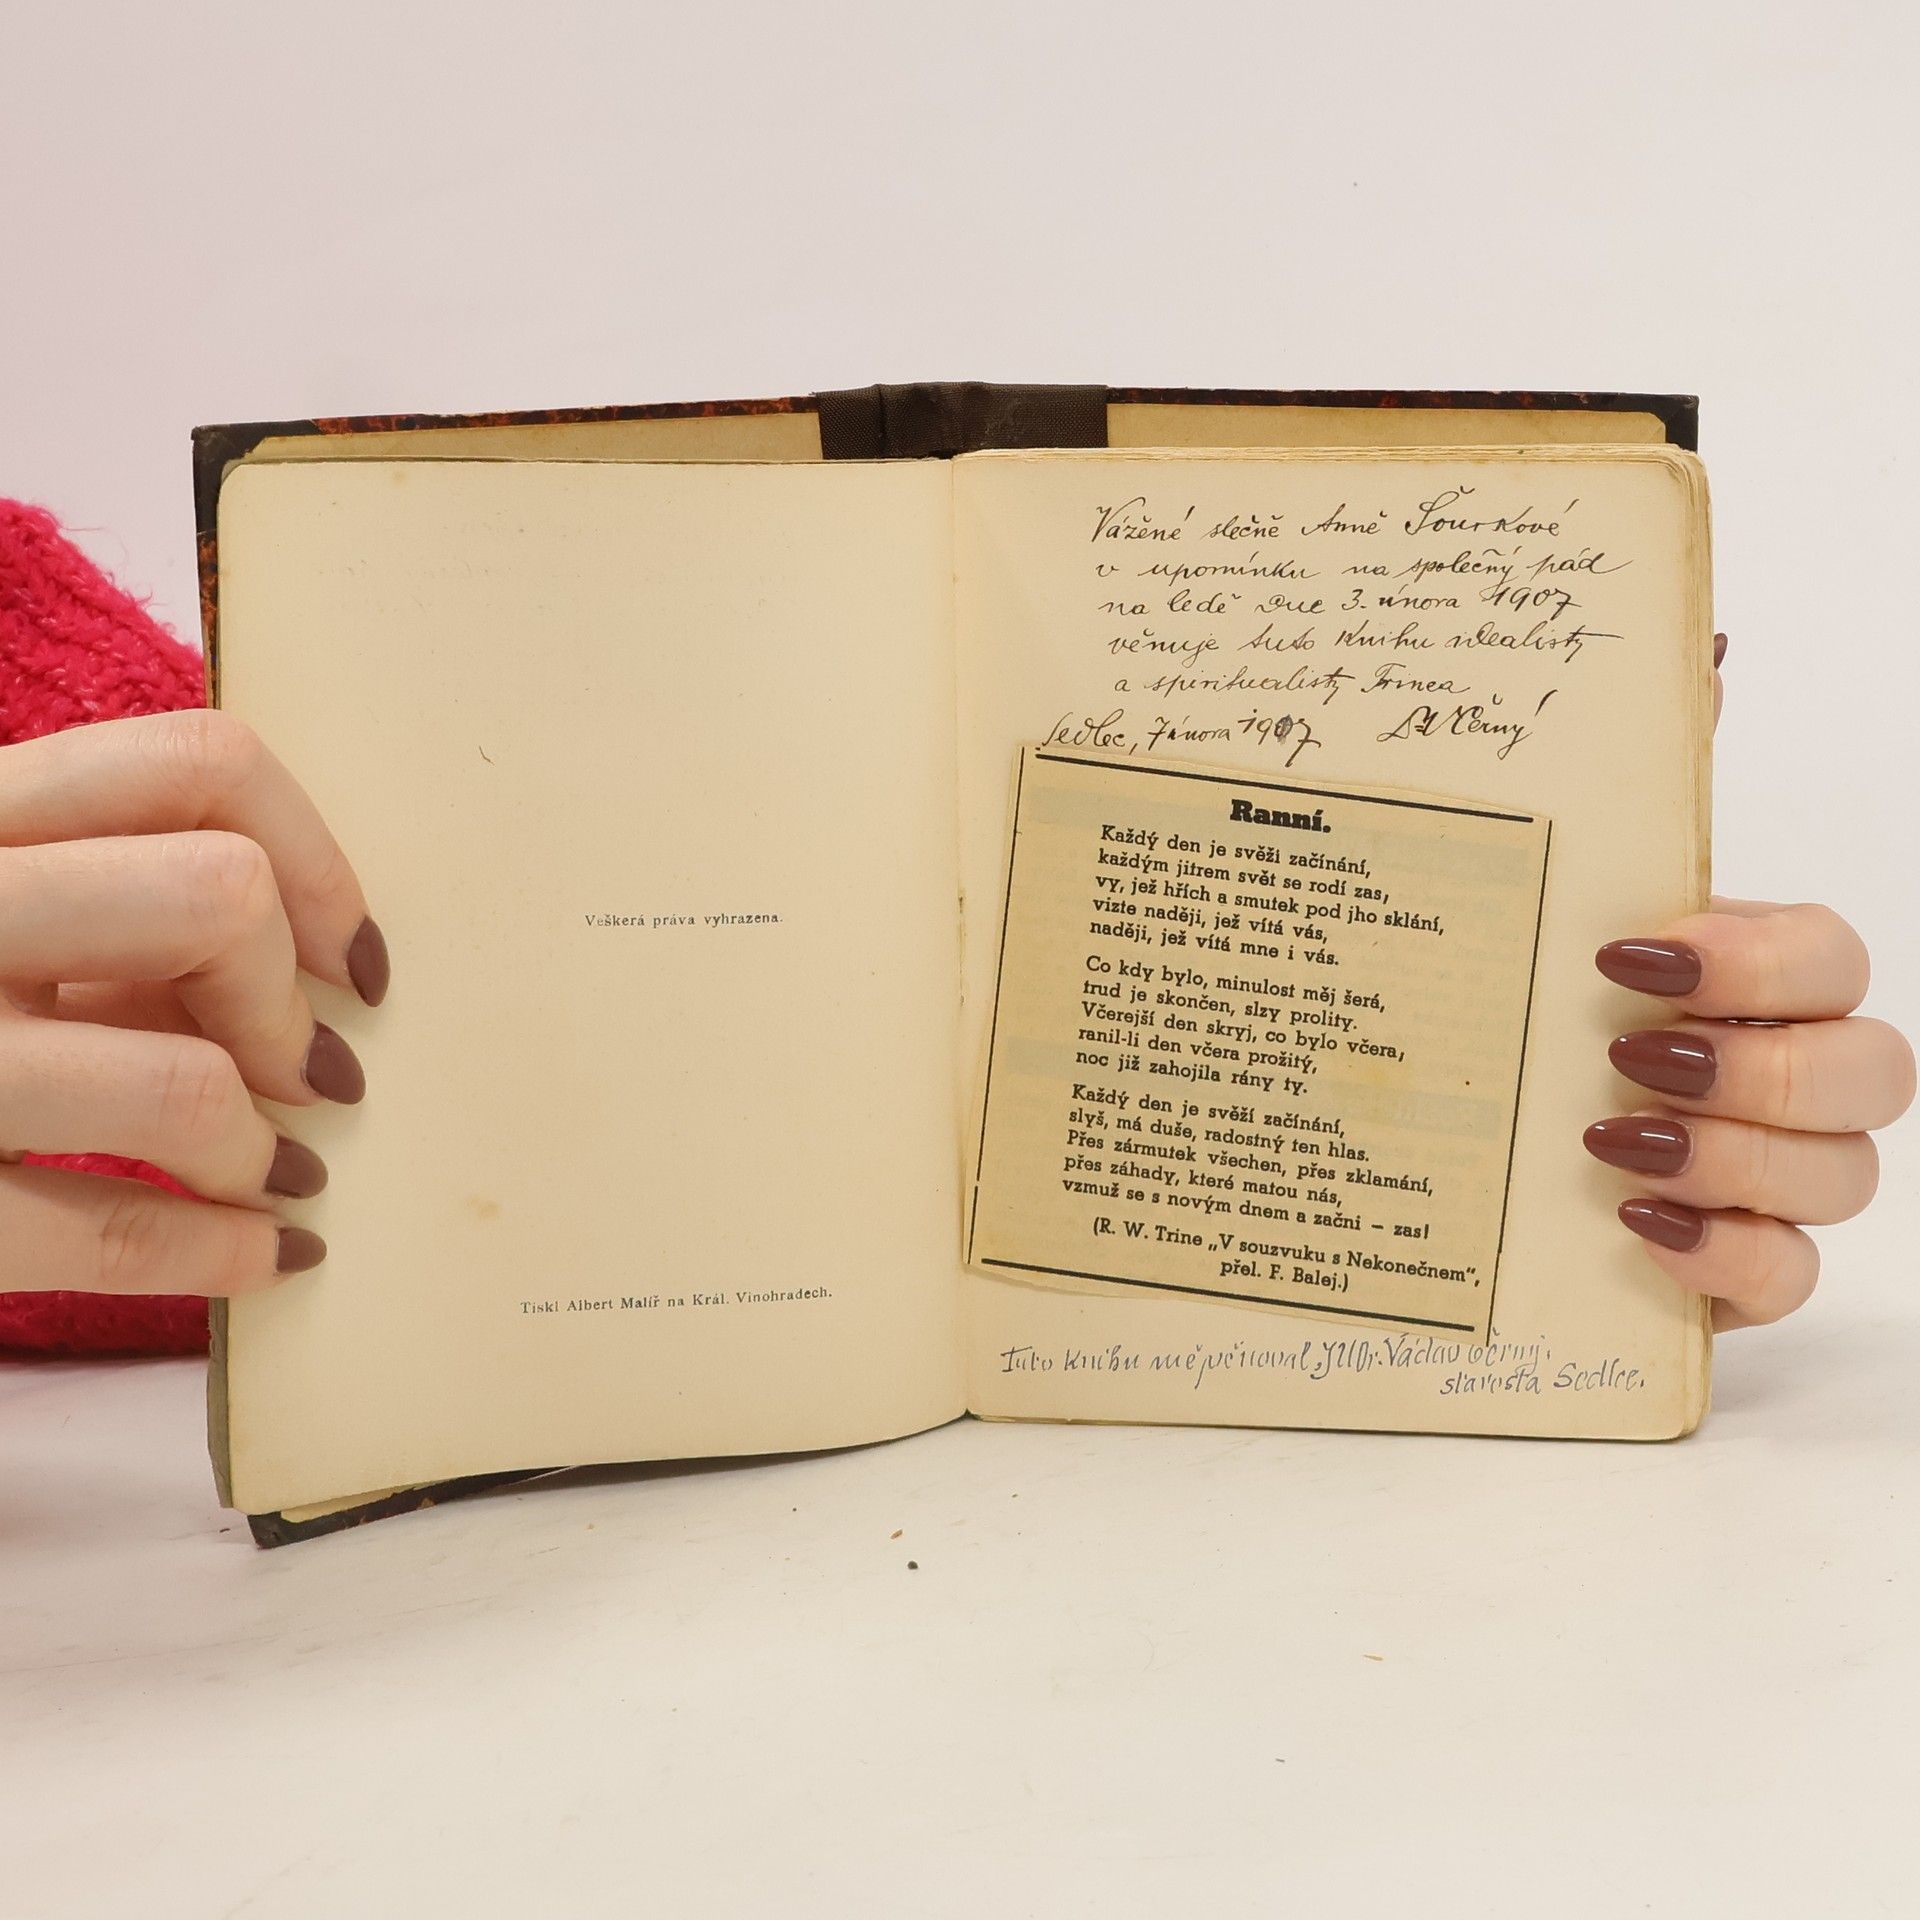 Veškerá práva vyhrazena.
Tiskl Albert Malíř na Král. Vinohradech.
Vážené slečně Anně Šourkové
v upomínku na společný pád
na ledě dne 3. února 1907
věnuje tuto knihu idealisty
a spiritualisty Trinea
Sedlec, 7 února 1907 Dr V Černý
Ranní.
Každý den je svěži začínání,
každým jitrem svět se rodí zas,
vy, jež hřích a smutek pod jho sklání,
vizte naději, jež vítá vás,
naději, jež vítá mne i vás.
Co kdy bylo, minulost měj šerá,
trud je skončen, slzy prolity.
Včerejší den skryj, co bylo včera,
ranil-li den včera prožitý,
noc již zahojila rány ty.
Každý den je svěží začínání,
slyš, má duše, radostný ten hlas.
Přes zármutek všechen, přes zklamání,
přes záhady, které matou nás,
vzmuž se s novým dnem a začni – zas!
(R. W. Trine „V souzvuku s Nekonečnem“,
přel. F. Balej.)
Tuto knihu mě věnoval, JUDr. Václav Černý.
starosta Sedlce.